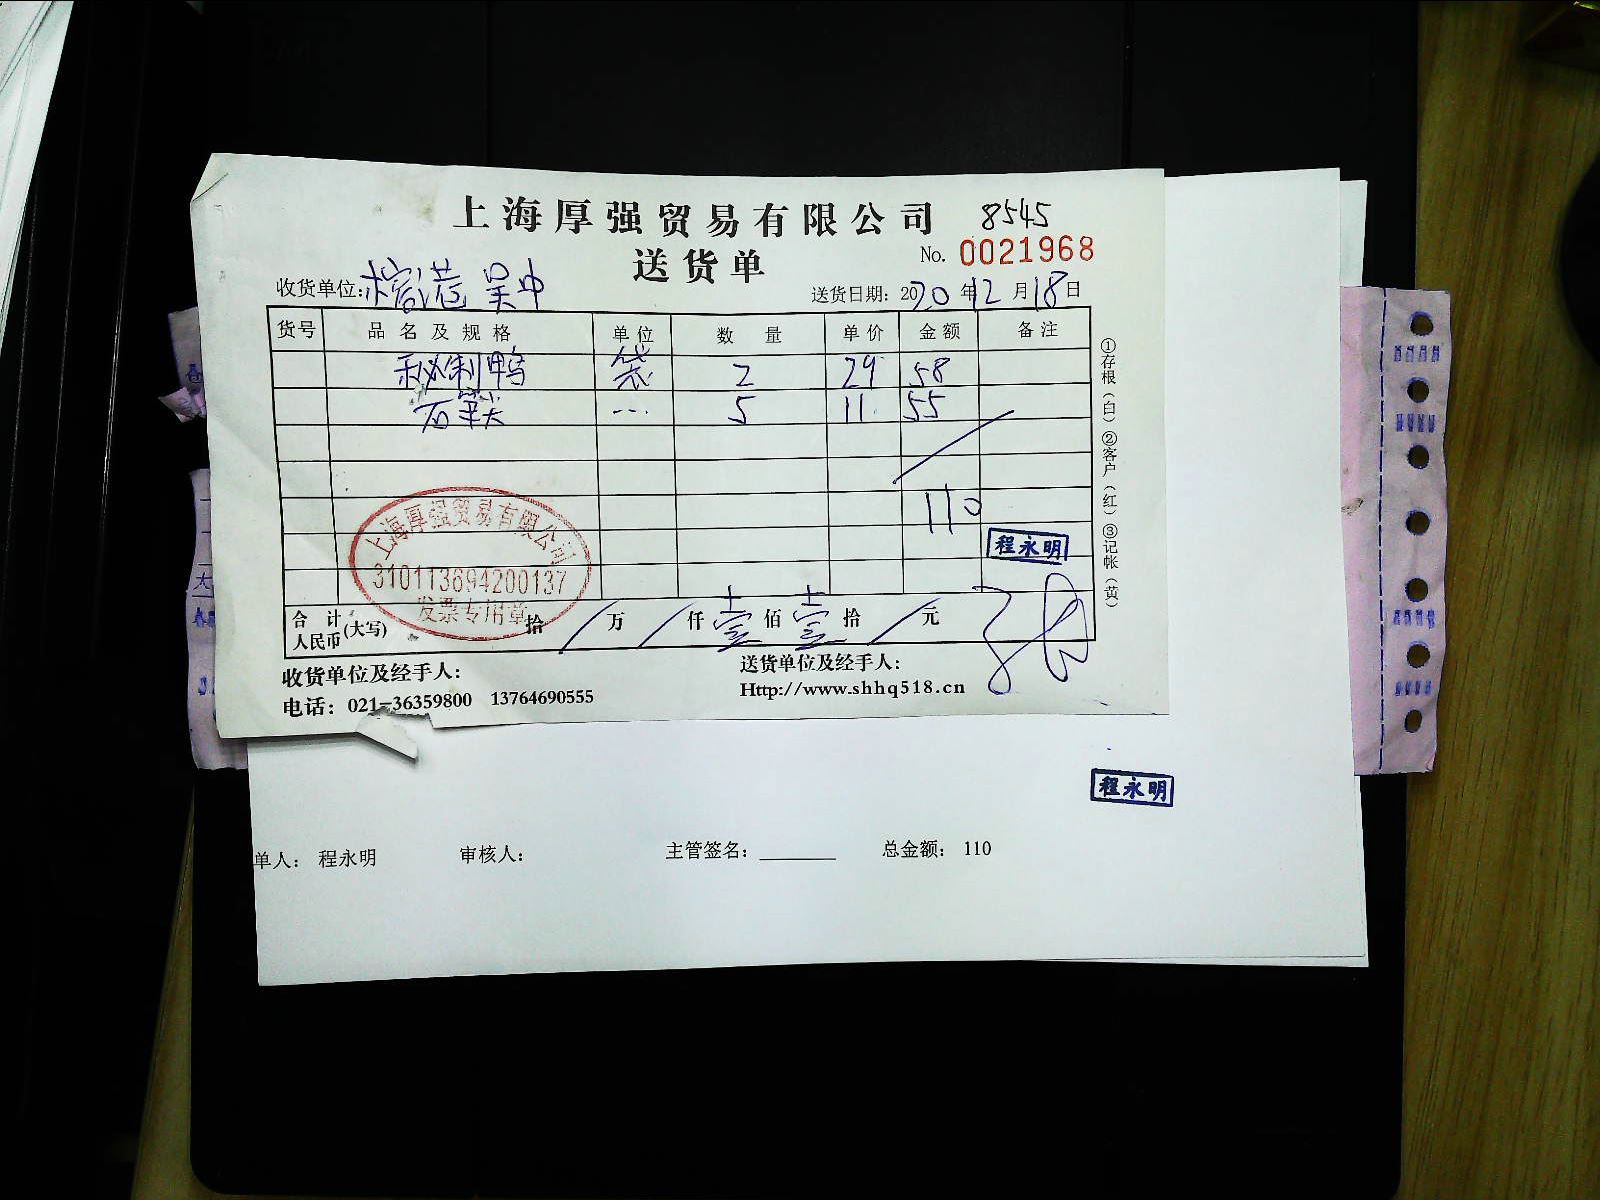 上海厚强贸易有限公司 8545
送货单 No. 0021968
收货单位: 吴中 送货日期: 2020年12月18日
货号 品名及规格 单位 数量 单价 金额 备注
秘制鸭 袋 2 29 58
石 5 11 55
110
程永明
上海厚强贸易有限公司
310113694200137
发票专用章
合计人民币(大写) 拾 / 万 / 仟 壹 佰 壹 拾 / 元
①存根(白)②客户(红)③记帐(黄)
收货单位及经手人: 送货单位及经手人:
电话: 021-36359800 13764690555 Http://www.shhq518.cn
程永明
单人: 程永明 审核人: 主管签名: 总金额: 110